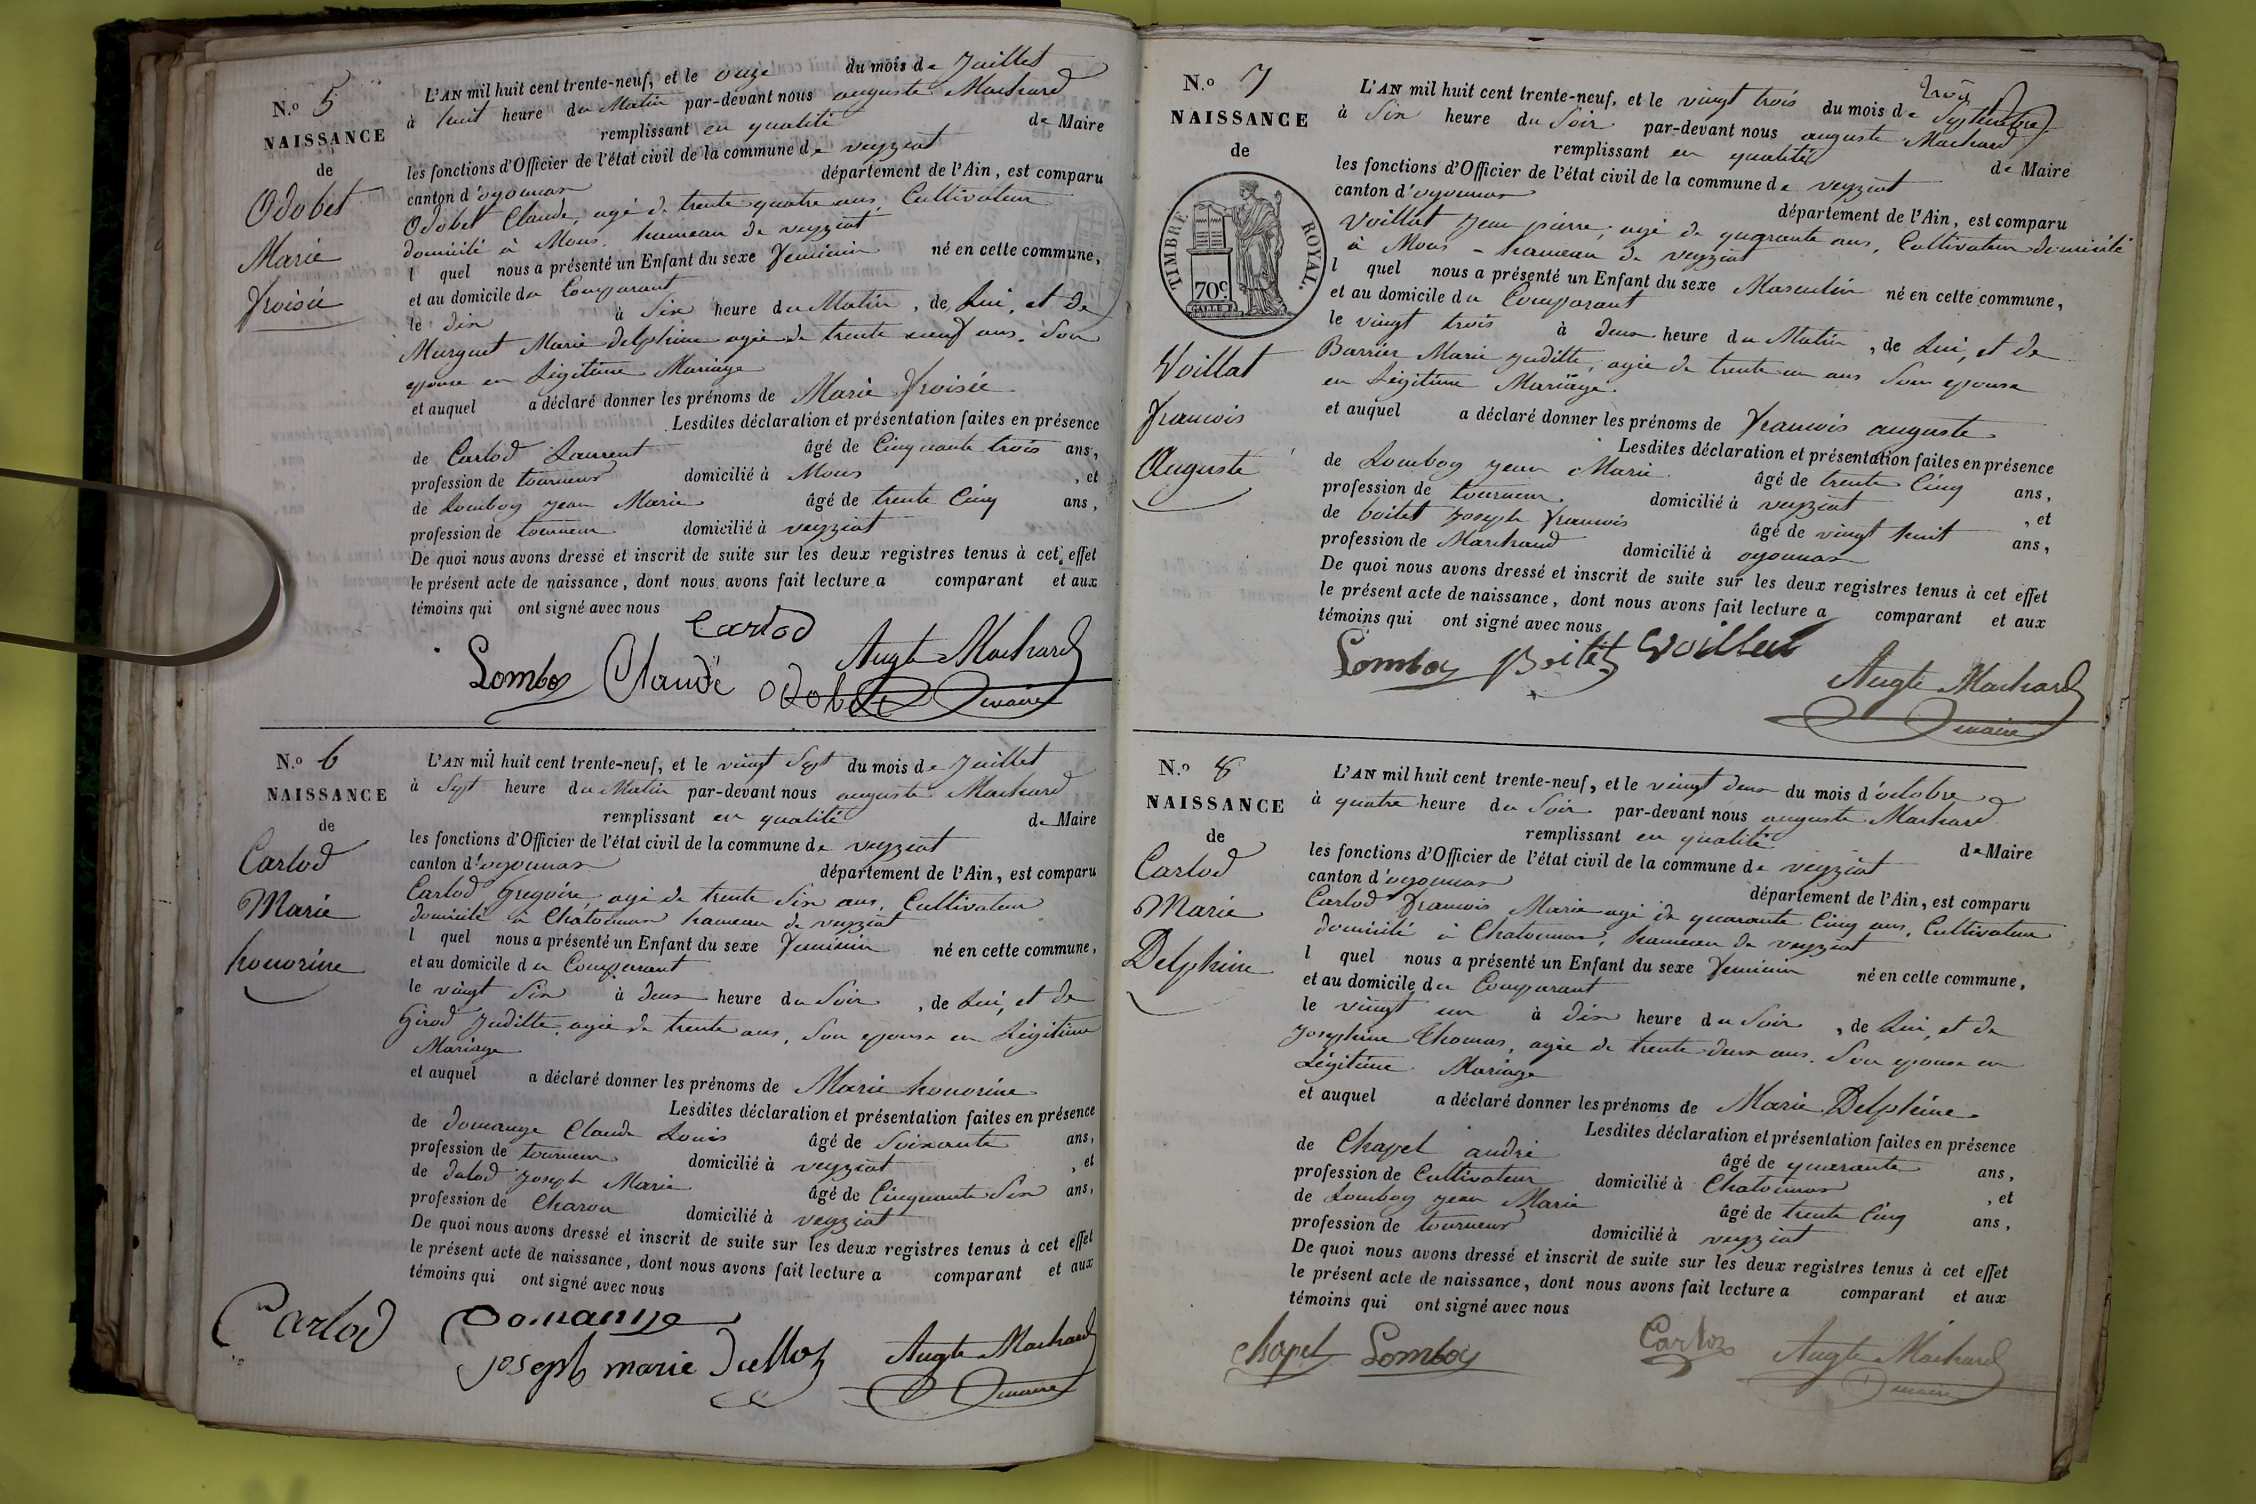 N.º 5
NAISSANCE
de
Odobet
Marie
froisée
L'AN mil huit cent trente-neuf, et le onze du mois de Juillet
à huit heure du Matin par-devant nous auguste Machard
remplissant en qualité de Maire
les fonctions d'Officier de l'état civil de la commune de veyziat
canton d'oyonnax département de l'Ain, est comparu
Odobet Claude, agé de trente quatre ans, Cultivateur
domicilié à Mons. hameau de veyziat
l quel nous a présenté un Enfant du sexe feminin né en cette commune,
et au domicile du Comparant
le dix à Six heure du Matin, de Lui, et de
Murguet Marie delphine agée de trente neuf ans. Son
epouse en Légitime Mariage
et auquel a déclaré donner les prénoms de Marie froisée
Lesdites déclaration et présentation faites en présence
de Carlod Laurent âgé de Cinquante trois ans,
profession de tourneur domicilié à Mons, et
de Lomboy jean Marie âgé de trente Cinq ans,
profession de tourneur domicilié à veyziat
De quoi nous avons dressé et inscrit de suite sur les deux registres tenus à cet effet
le présent acte de naissance, dont nous avons fait lecture a comparant et aux
témoins qui ont signé avec nous
Carlod
Lomboy Claude Odobet Augte Machard
maire
N.º 6
NAISSANCE
de
Carlod
Marie
honorine
L'AN mil huit cent trente-neuf, et le vingt Sept du mois de Juillet
à Sept heure du Matin par-devant nous auguste Machard
remplissant en qualité de Maire
les fonctions d'Officier de l'état civil de la commune de veyziat
canton d'oyonnax département de l'Ain, est comparu
Carlod Gregoire, agé de trente Six ans, Cultivateur
domicilié à Chatonnax hameau de veyziat
l quel nous a présenté un Enfant du sexe feminin né en cette commune,
et au domicile du Comparant
le vingt Six à deux heure du Soir, de Lui, et de
Girod Juditte, agée de trente ans, Son epouse en Légitime
Mariage
et auquel a déclaré donner les prénoms de Marie honorine
Lesdites déclaration et présentation faites en présence
de domange Claude Louis âgé de Soixante ans,
profession de tourneur domicilié à veyziat, et
de dalod Joseph Marie âgé de Cinquante Six ans,
profession de Charon domicilié à veyziat
De quoi nous avons dressé et inscrit de suite sur les deux registres tenus à cet effet
le présent acte de naissance, dont nous avons fait lecture a comparant et aux
témoins qui ont signé avec nous
Carlod Domange
joseph marie Augte Machard
maire
N.º 7
NAISSANCE
de
TIMBRE ROYAL.
70 c.
Voillat
francois
Auguste
L'AN mil huit cent trente-neuf, et le vingt trois du mois de Septembre
à Six heure du Soir par-devant nous auguste Machard
remplissant en qualité de Maire
les fonctions d'Officier de l'état civil de la commune de veyziat
canton d'oyonnax département de l'Ain, est comparu
Voillat Jean pierre, agé de quarante ans, Cultivateur domicilié
à Mons - hameau de veyziat
l quel nous a présenté un Enfant du sexe Masculin né en cette commune,
et au domicile du Comparant
le vingt trois à deux heure du Matin, de Lui, et de
Barrier Marie juditte, agée de trente un ans Son epouse
en Légitime Mariage.
et auquel a déclaré donner les prénoms de francois auguste
Lesdites déclaration et présentation faites en présence
de Lomboy jean Marie âgé de trente Cinq ans,
profession de tourneur domicilié à veyziat, et
de boitet Joseph francois âgé de vingt huit ans,
profession de Marchand domicilié à oyonnax
De quoi nous avons dressé et inscrit de suite sur les deux registres tenus à cet effet
le présent acte de naissance, dont nous avons fait lecture a comparant et aux
témoins qui ont signé avec nous
Lomboy Boitet Voillat
Augte Machard
maire
N.º 8
NAISSANCE
de
Carlod
Marie
Delphine
L'AN mil huit cent trente-neuf, et le vingt deux du mois d'octobre
à quatre heure du Soir par-devant nous auguste Machard
remplissant en qualité de Maire
les fonctions d'Officier de l'état civil de la commune de veyziat
canton d'oyonnax département de l'Ain, est comparu
Carlod francois Marie agé de quarante Cinq ans, Cultivateur
domicilié à Chatonnax, hameau de veyziat
l quel nous a présenté un Enfant du sexe feminin né en cette commune,
et au domicile du Comparant
le vingt un à dix heure du Soir, de Lui, et de
Josephine Thomas, agée de trente deux ans. Son epouse en
Légitime Mariage
et auquel a déclaré donner les prénoms de Marie Delphine
Lesdites déclaration et présentation faites en présence
de Chapel andré âgé de quarante ans,
profession de Cultivateur domicilié à Chatonnax, et
de Lomboy jean Marie âgé de trente Cinq ans,
profession de tourneur domicilié à veyziat
De quoi nous avons dressé et inscrit de suite sur les deux registres tenus à cet effet
le présent acte de naissance, dont nous avons fait lecture a comparant et aux
témoins qui ont signé avec nous
chapel Lomboy Carlod Augte Machard
maire